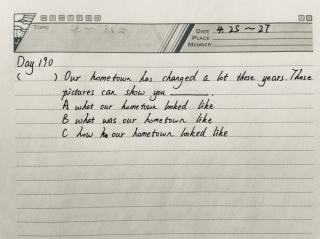 M T W T F S S
TOPIC
DATE 4.25~27
PLACE
MEMBER
Day 190
( ) Our hometown has changed a lot these years. These
pictures can show you ______.
A what our hometown looked like
B what was our hometown like
C how our hometown looked like